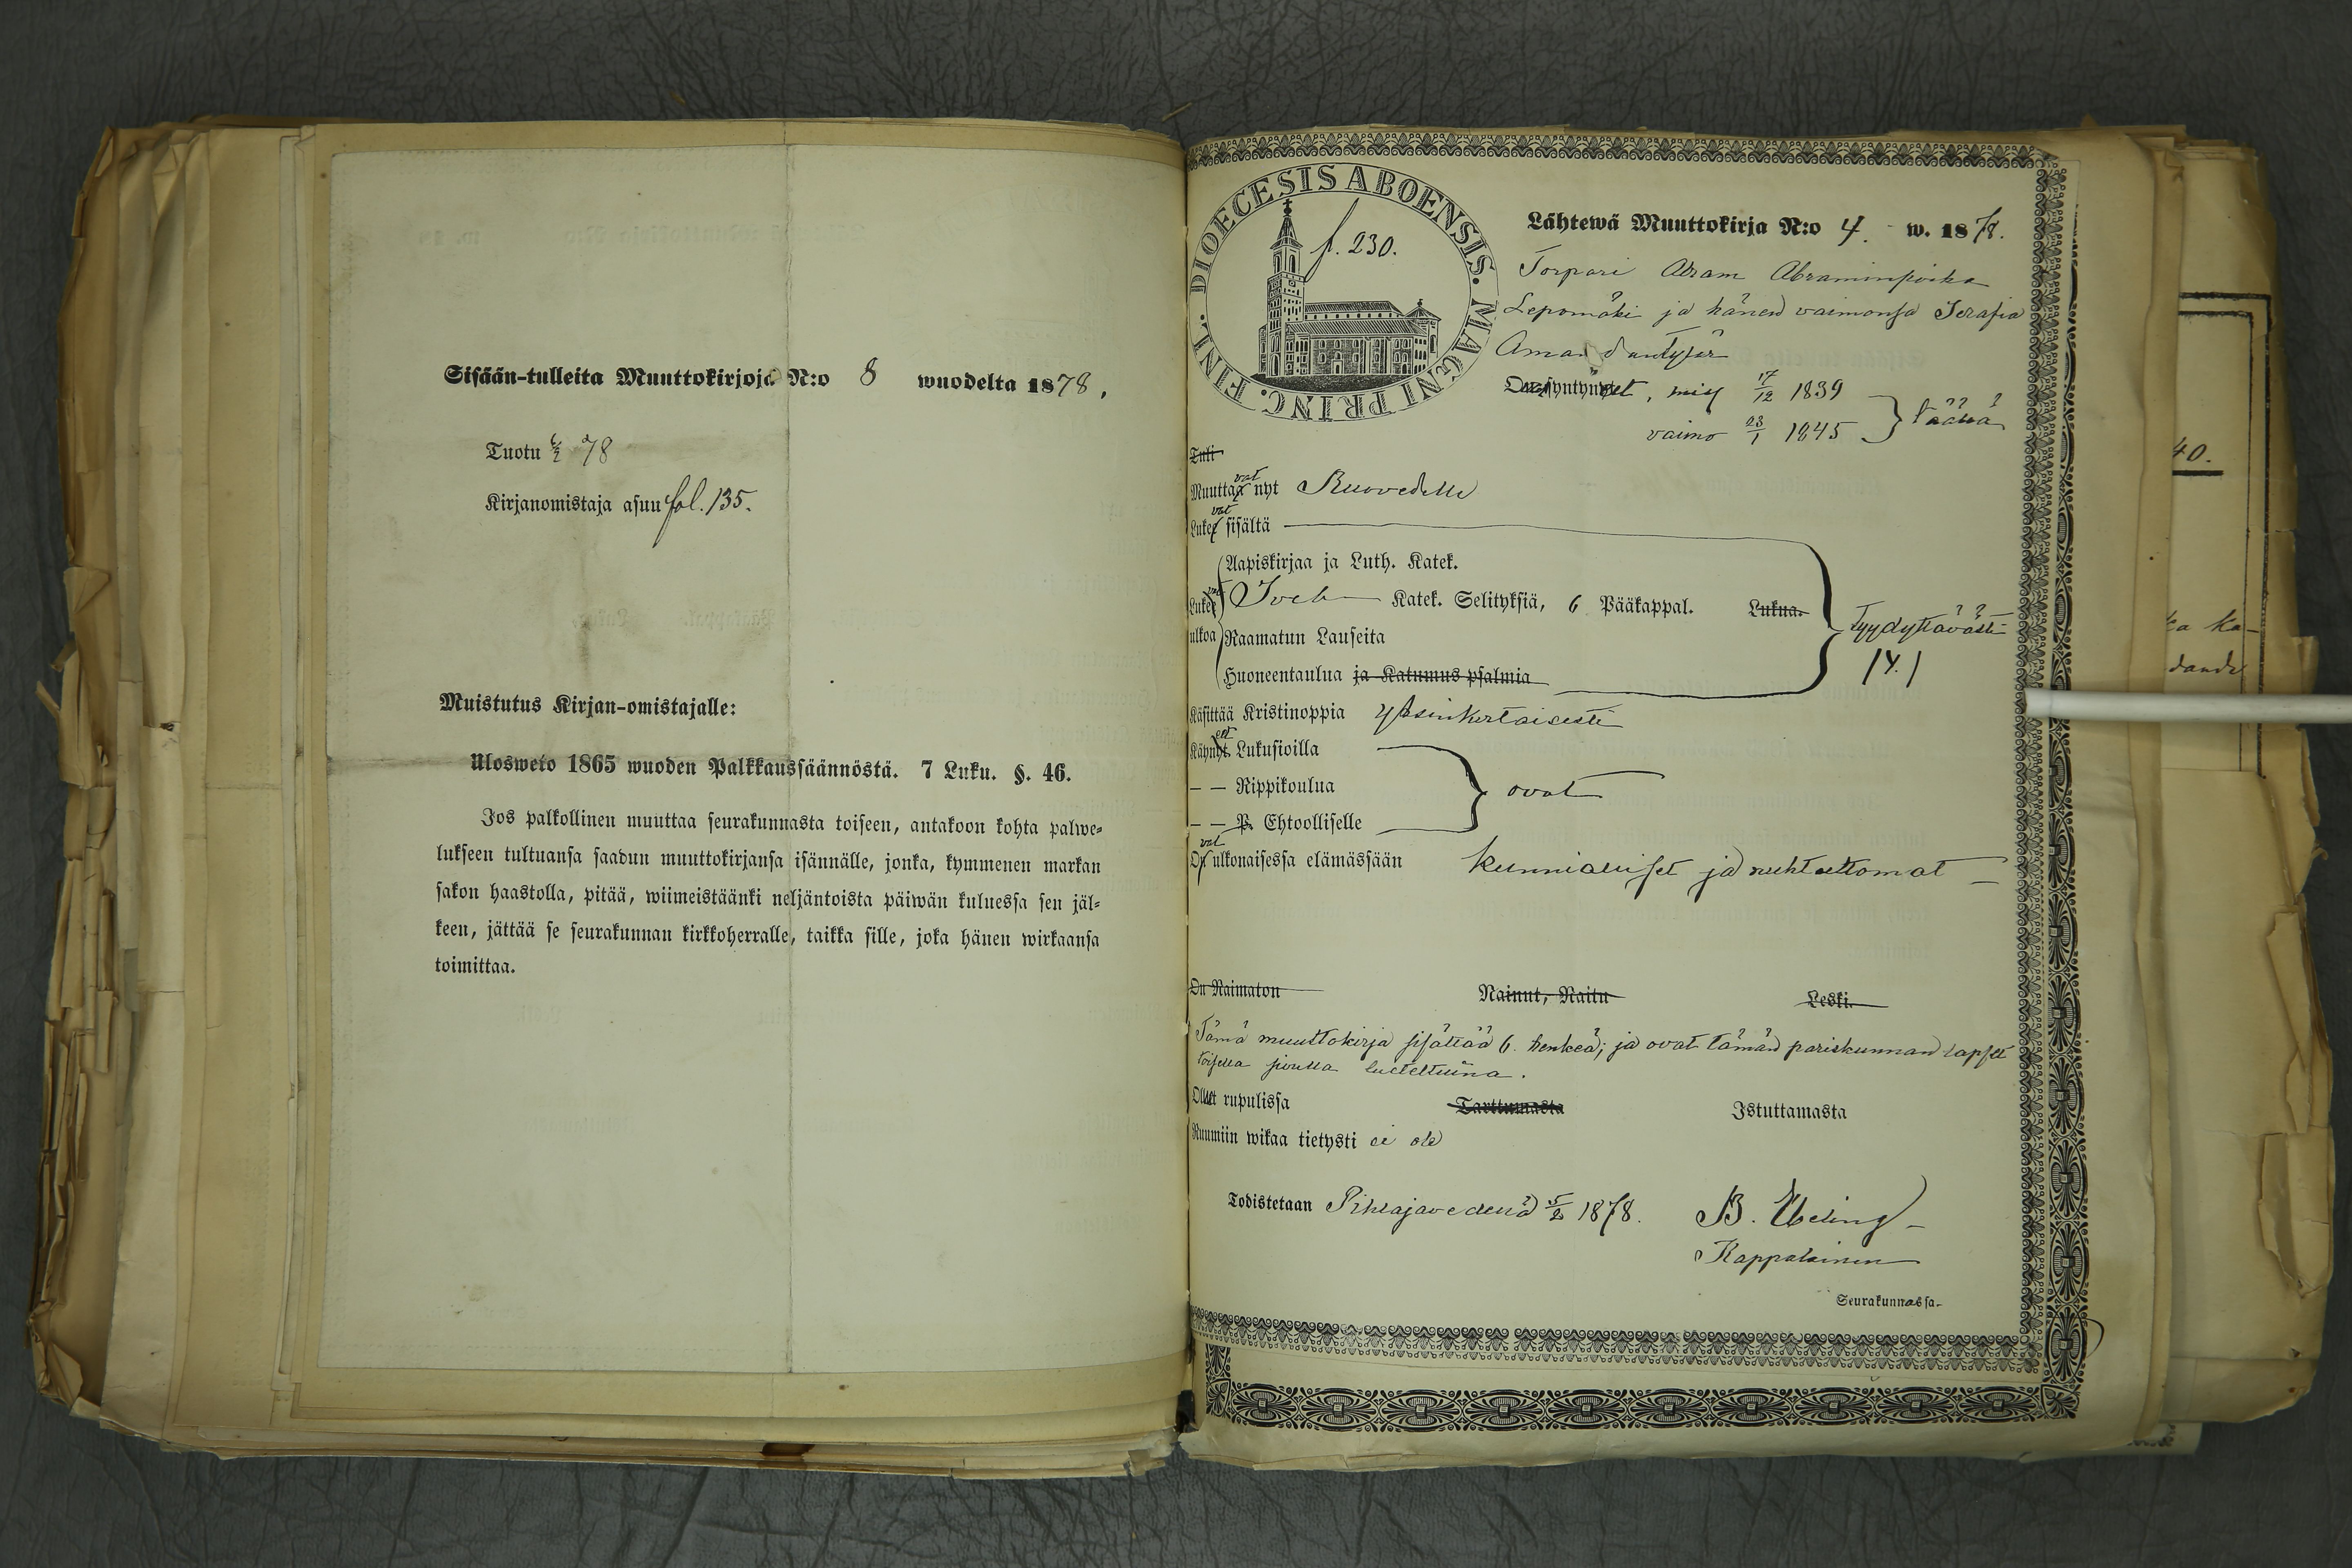 Sisään-tulleita Muuttokirjoja N:o 8 wuodelta 1878.
Tuotu 78
Kirjanomistaja asuu fol. 135.
Muistutus Kirjan-omistajalle:
Ulosweto 1865 wuoden Palkkaussäännöstä. 7 Luku. §. 46.
Jos palkollinen muuttaa seurakunnasta toiseen, antakoon kohta palwe-
lukseen tultuansa saadun muuttokirjansa isännälle, jonka, kymmenen markan
sakon haastolla, pitää, wiimeistäänki neljäntoista päiwän kuluessa sen jäl-
keen, jättää se seurakunnan kirkkoherralle, taikka sille, joka hänen wirkaansa
toimittaa.
DIOECESIS ABOENSIS. MAGNI PRINC. FINL.
f. 230.
Lähtewä Muuttokirja N:o 4. w. 1878.
Torpari Abram Abraminpoika
Lepomäki ja hänen vaimonsa Serafia
Amandantytär
On syntynyet, mies 17/12 1839
vaimo 23/1 1845 } täällä
Tuli
Muuttaavat nyt Ruovedelle
Lukevat sisältä
Aapiskirjaa ja Luth. Katek.
Lukevat ulkoa Katek. Selityksiä, 6 Pääkappal. Lukua.
Raamatun Lauseita
Huoneentaulua ja Katumus psalmia
tyydyttävästi
Käsittää Kristinoppia yksinkertaisesti
Käynyet Lukusioilla
— — Rippikoulua
— — P. Ehtoolliselle
ovat
Ovat ulkonaisessa elämässään kunnialliset ja nuhteettomat —
On Naimaton Nainut, Naitu Leski.
Tämä muuttokirja sisältää 6. henkeä; ja ovat tämän pariskunnan lapset
toisella sivulla lueteltuina.
Olleet rupulissa Tarttumasta Istuttamasta
Ruumiin wikaa tietysti ei ole
Todistetaan Pihlajavedellä 5/2 1878. B.
Kappalainen
Seurakunnassa.
40.
ka ka-